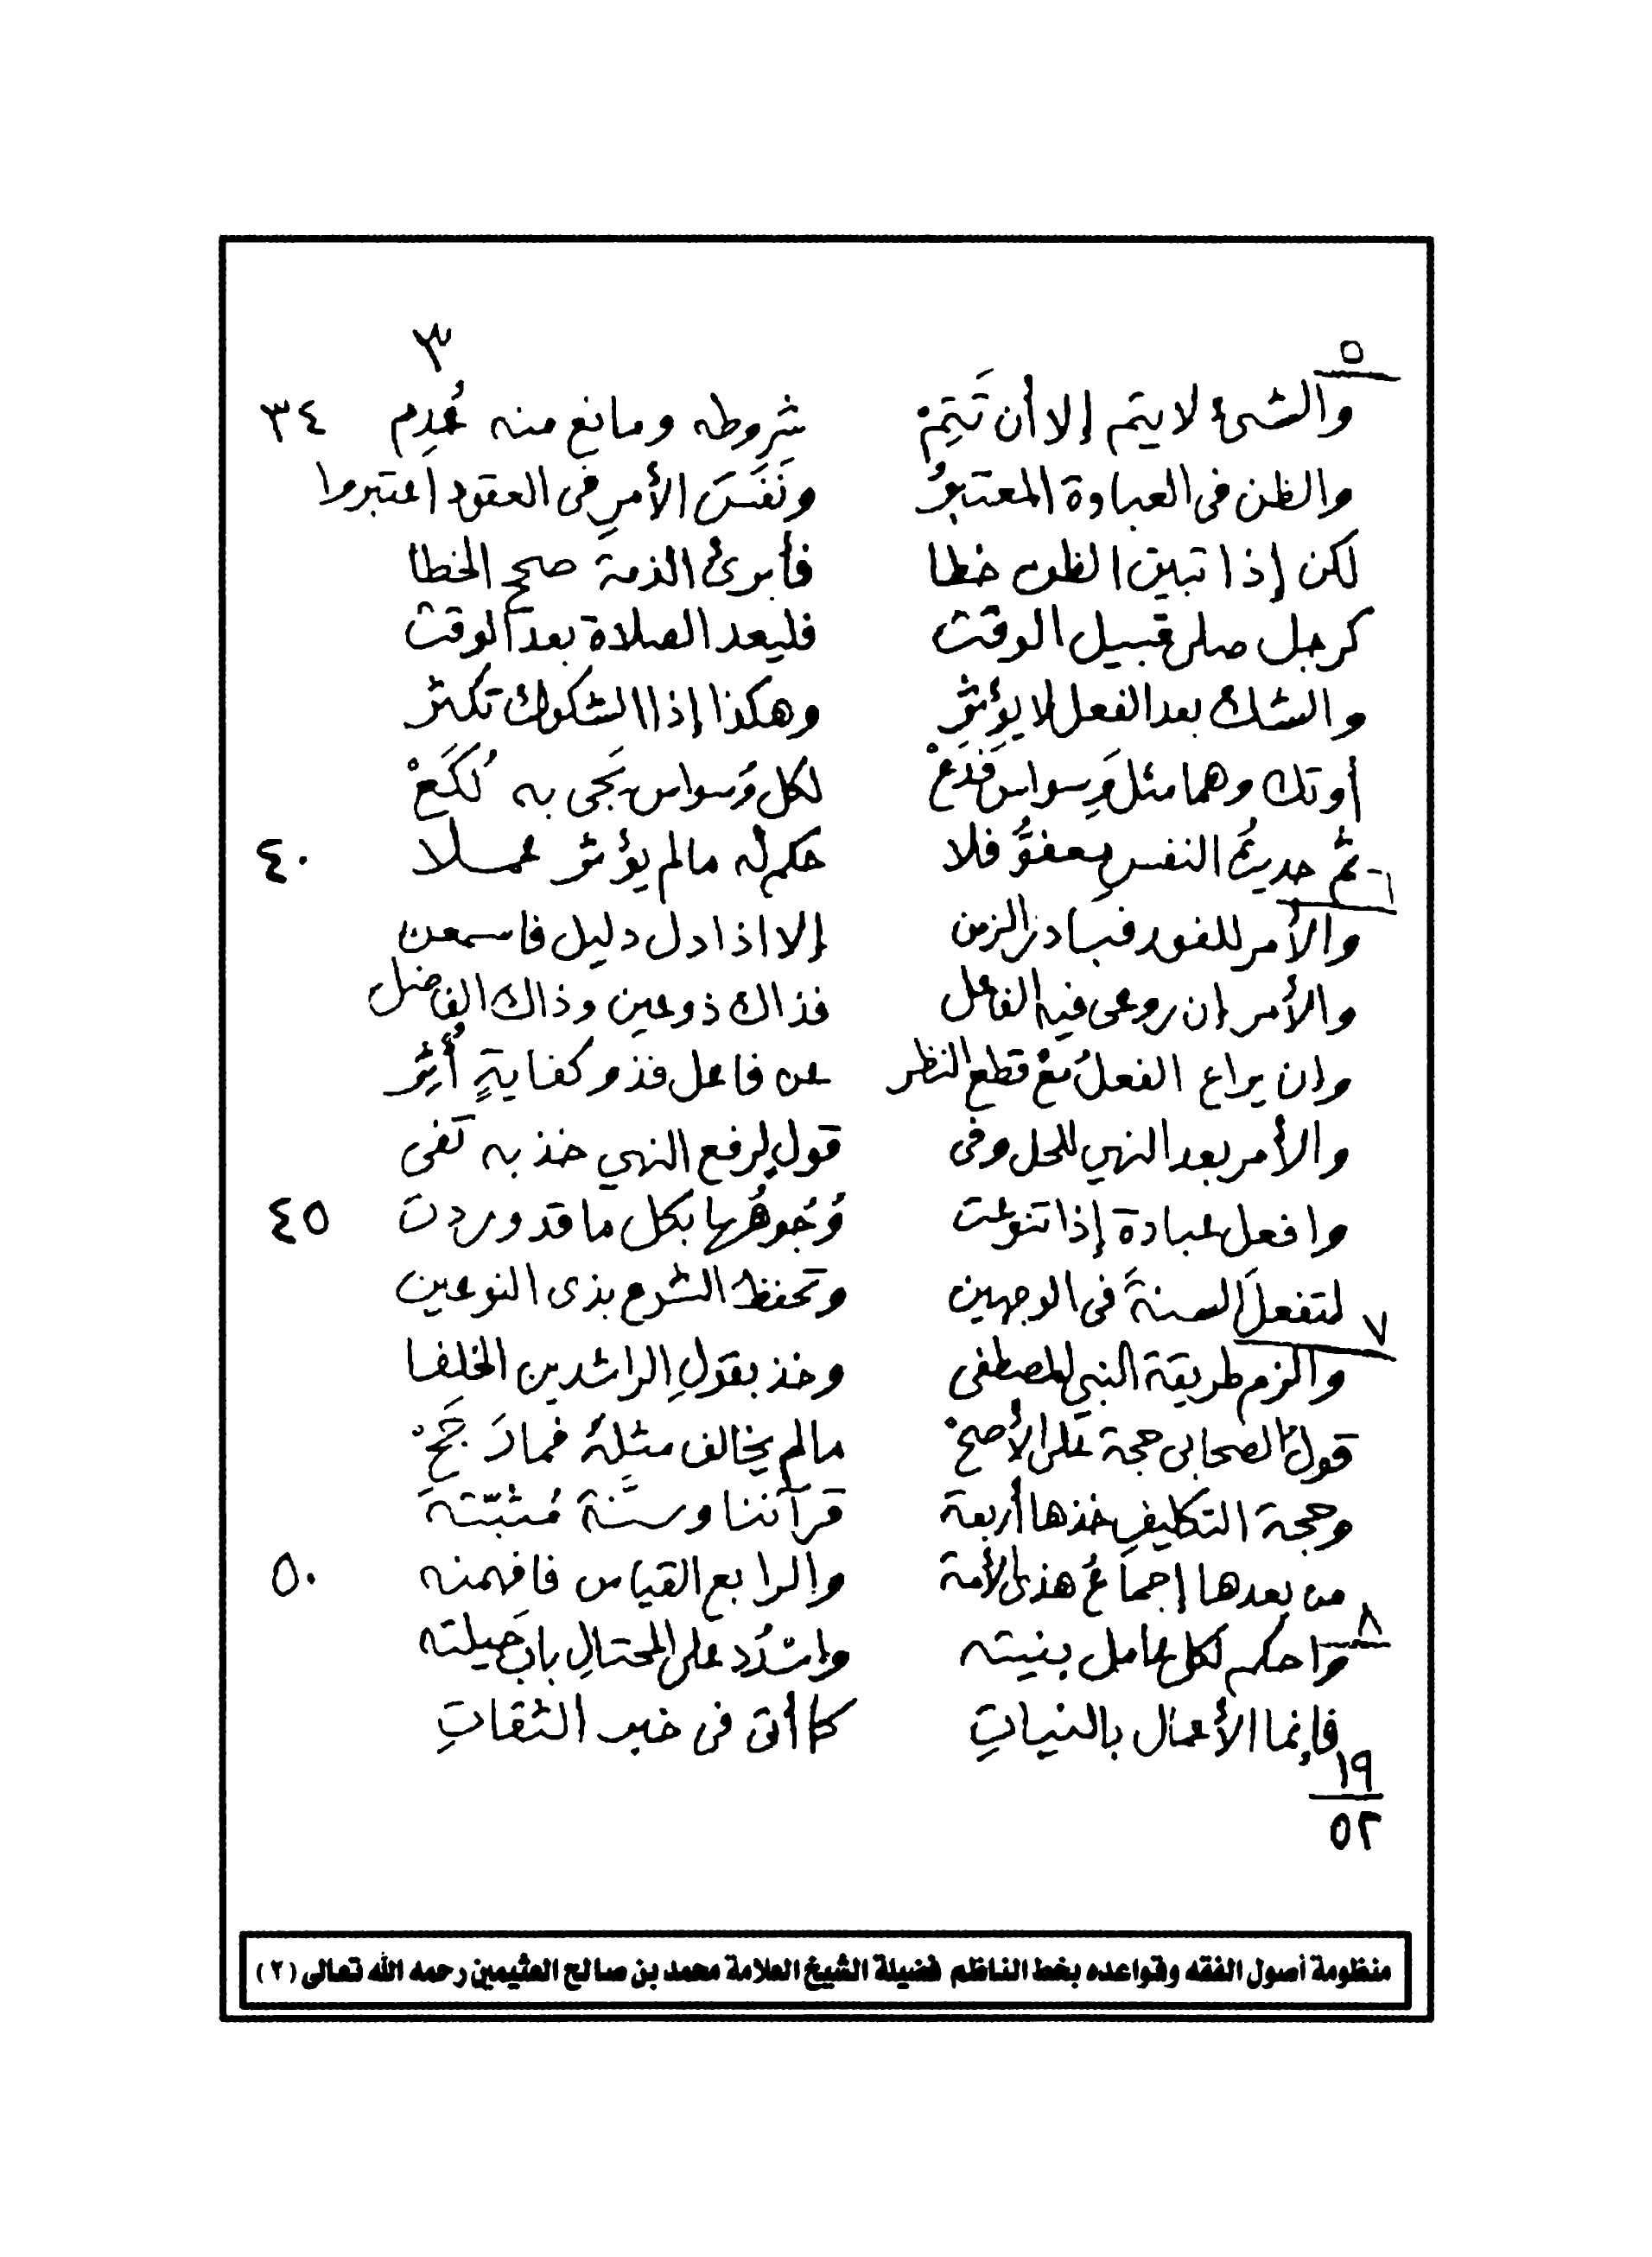 ٣
٥
والشئ لا يتم إلا أن تَتِمْ شروطه ومانع منه عُدِم ٣٤
والظن فى العبادة المعتبرُ ونَفَسَ الأمرِ فى العقود اعتبروا
لكن إذا تبين الظن خطا فأبرئ الذمة صحح الخطا
كرجل صلى قبيل الوقت فليعد الصلاة بعد الوقت
والشك بعد الفعل لا يؤثر وهكذا إذا الشكوك تكثر
أو تك وهما مثلَ وِسواس فَدَعْ لكل وَسواس يَجى به لُكَعْ
٦- ثم حديثُ النفسِ معفوٌّ فلا حكم له مالم يؤثر عملا ٤٠
والأمر للفور فبادر الزمن إلا اذا دل دليل فاسمعن
والأمر إن روعى فيه الفاعل فذاك ذو عين وذاك الفاضل
وإن يراع الفعلُ معْ قطع النظر عن فاعل فذو كفايةٍ أُثِر
والأمر بعد النهي للحل وفى قول لرفع النهي خذ به تفى
وافعل عبادة إذا تنوعت وُجُوهُها بكل ما قد وردت ٤٥
لتفعلَ السنةَ فى الوجهين وتحفظ الشرع بذى النوعين
٧
والزم طريقة النبي المصطفى وخذ بقولِ الراشدين الخلفا
قول الصحابى حجة على الأصحْ مالم يخالف مثلِهُ فما رَجَحْ
وحجة التكليفِ خذها أربعة قرآننا وسنَّة مُثبّتَه
من بعدها إجماعُ هذى الأمة والرابع القياس فافهمنه ٥٠
٨
واحكم لكل عامل بنيته واشدُد على المحتالِ بابَ حيلته
فإنما الأعمال بالنياتِ كما أتى فى خبر الثقاتِ
١٩
٥٢
منظومة أصول الفقه وقواعده بخط الناظم فضيلة الشيخ العلامة محمد بن صالح العثيمين رحمه الله تعالى (٢)